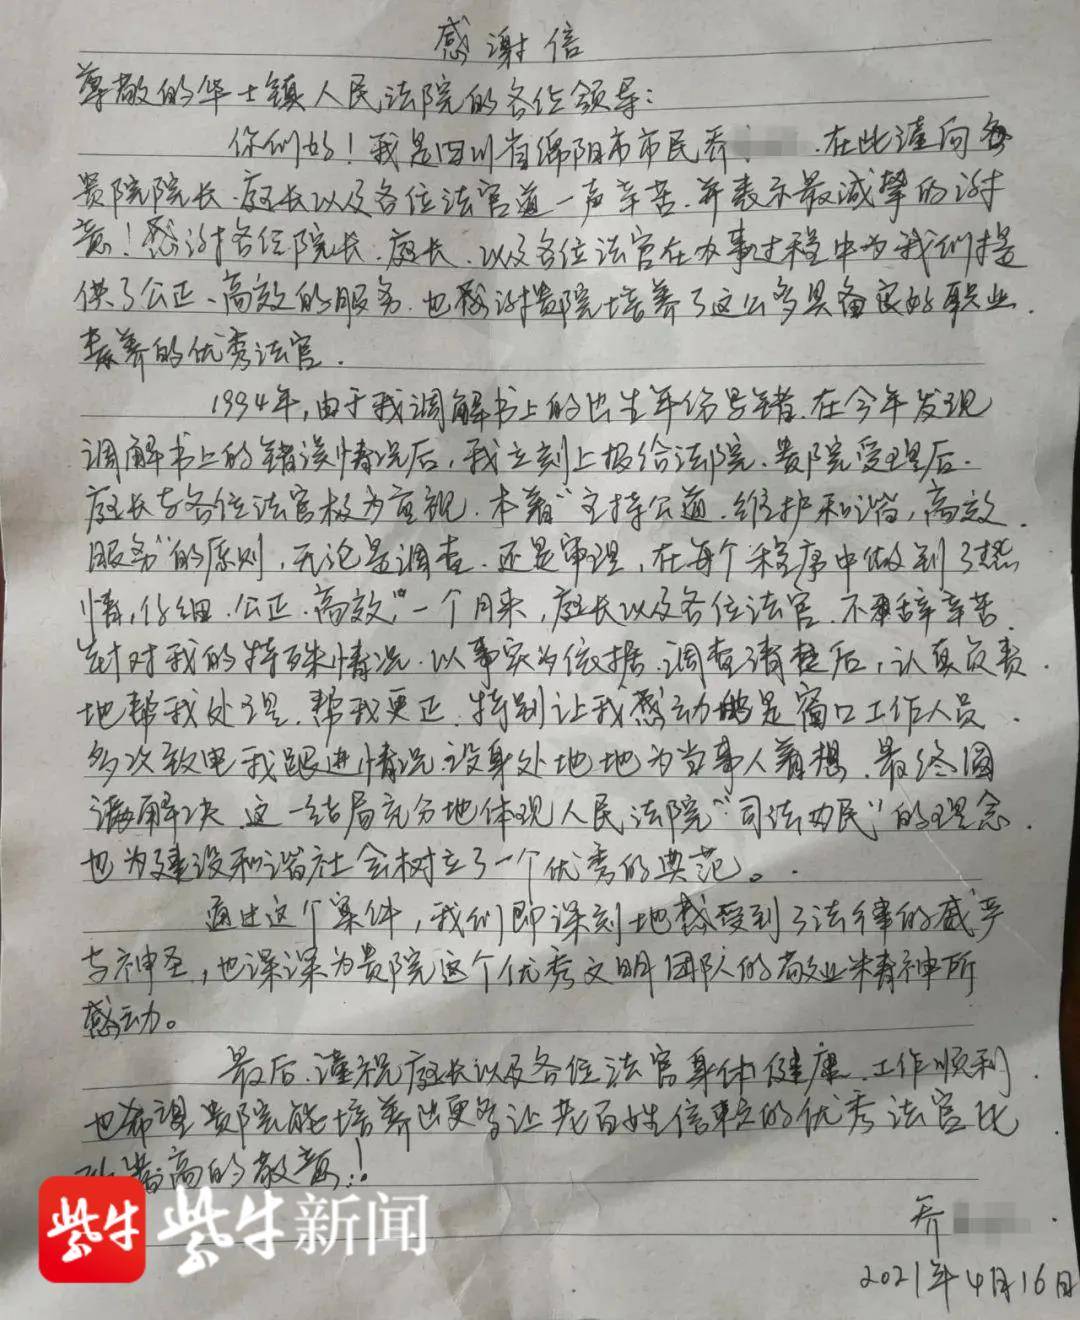 感谢信
尊敬的华士镇人民法院的各位领导:
你们好!我是四川省绵阳市市民乔 在此谨向
贵院院长.庭长以及各位法官道一声辛苦.并表示最诚挚的谢
意!感谢各位院长.庭长.以及各位法官在办事过程中为我们提
供了公正、高效的服务.也感谢贵院培养了这么多具备良好职业
素养的优秀法官.
1994年,由于我调解书上的出生年份写错.在今年发现
调解书上的错误情况后,我立刻上报给法院.贵院受理后.
庭长与各位法官极为重视.本着“主持公道.维护和谐,高效.
服务”的原则,无论是调查.还是审理,在每个程序中做到了热
情,仔细.公正.高效,“一个月来,庭长以及各位法官.不辞辛苦.
针对我的特殊情况.以事实为依据.调查清楚后,认真负责.
地帮我处理.帮我更正.特别让我感动的是窗口工作人员.
多次致电我跟进情况.设身处地地为当事人着想.最终圆
满解决.这一结局充分地体现人民法院“司法为民”的理念.
也为建设和谐社会树立了一个优秀的典范。
通过这个案件,我们即深刻地感受到了法律的威严
与神圣,也深深为贵院这个优秀文明团队的敬业精神所
感动。
最后.谨祝庭长以及各位法官身体健康.工作顺利
也希望贵院能培养出更多让老百姓信赖的优秀法官
高的敬意!
乔
2021年4月16日
紫牛 紫牛新闻